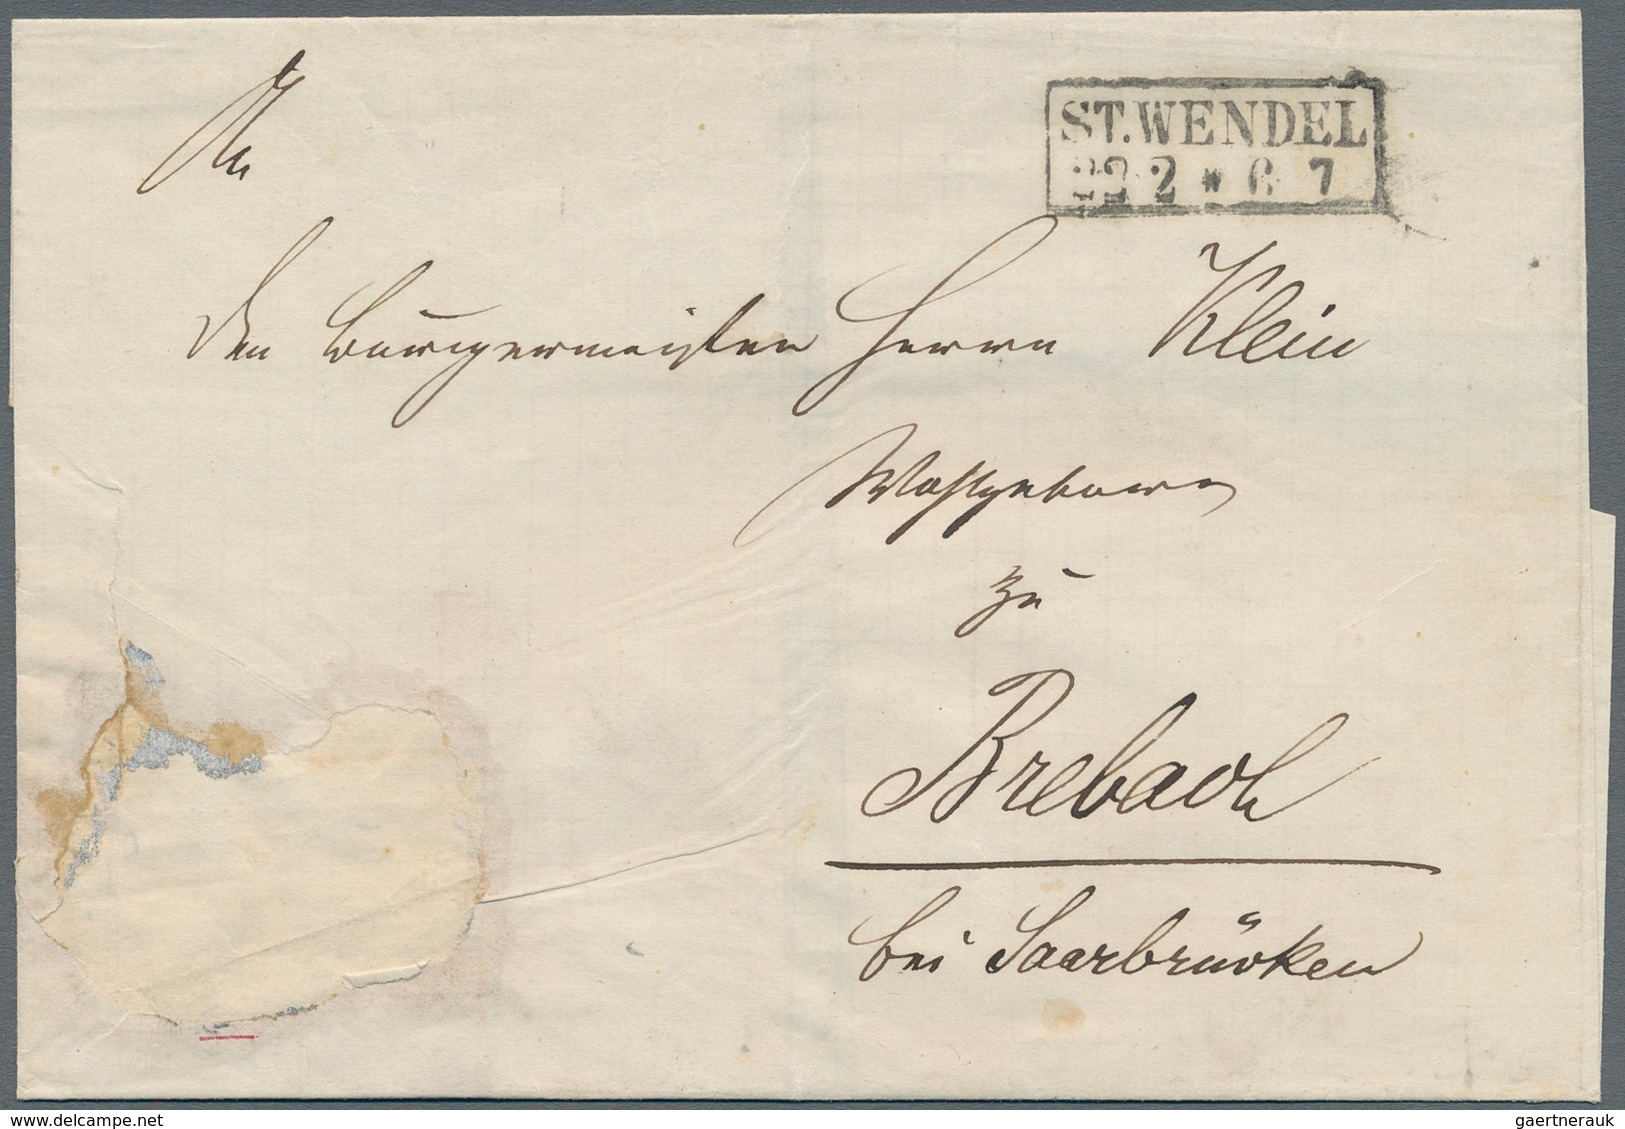 ST. WENDEL
22 2 * 6 7
An
den Bürgermeister Herrn Klein
Wohlgeboren
zu
Brebach
bei Saarbrücken
www.delcampe.net
gaertnerauk